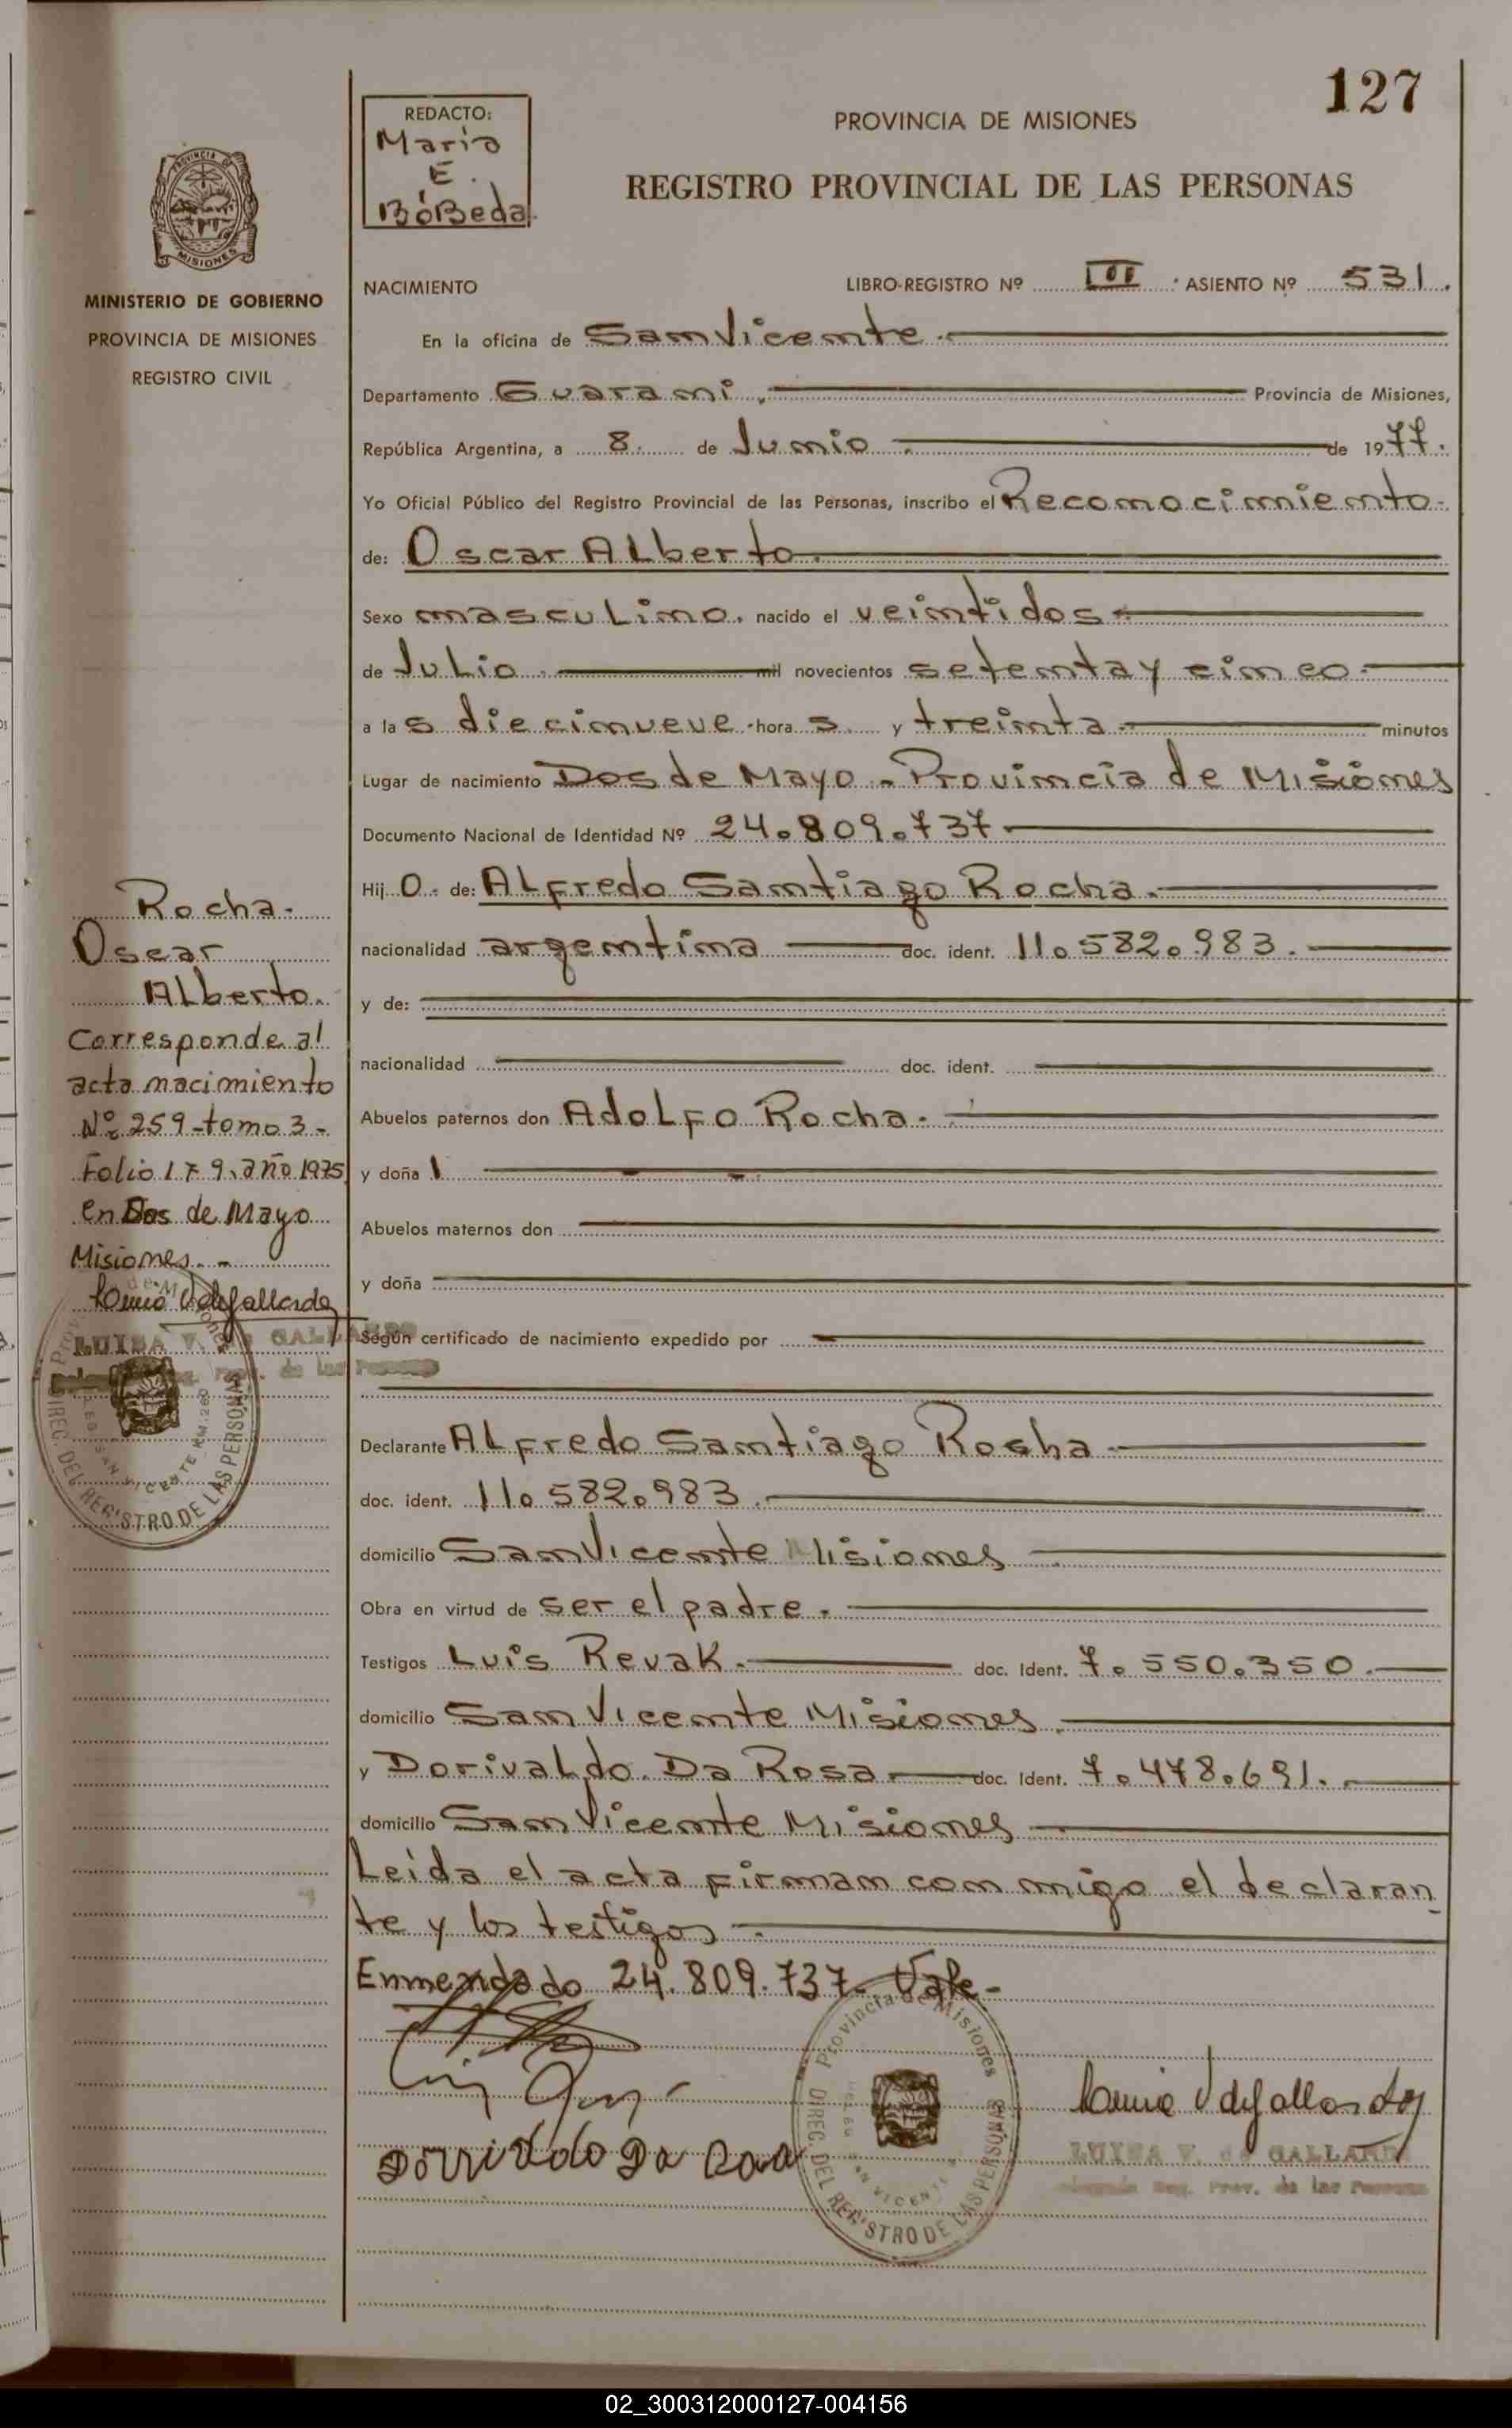 127
REDACTO:
Maria
E.
BóBeda.
PROVINCIA DE MISIONES
REGISTRO PROVINCIAL DE LAS PERSONAS
PROVINCIA DE
MISIONES
MINISTERIO DE GOBIERNO
PROVINCIA DE MISIONES
REGISTRO CIVIL
NACIMIENTO LIBRO-REGISTRO Nº III ASIENTO Nº 531.
En la oficina de San Vicente.
Departamento Guarani. Provincia de Misiones,
República Argentina, a 8. de Junio. de 1977.
Yo Oficial Público del Registro Provincial de las Personas, inscribo el Reconocimiento.
de: Oscar Alberto.
Sexo masculino. nacido el veintidos.
de Julio. mil novecientos setenta y cinco.
a las diecinueve. horas y treinta. minutos
Lugar de nacimiento Dos de Mayo - Provincia de Misiones
Documento Nacional de Identidad Nº 24.809.737
Hijo. de: Alfredo Santiago Rocha.
nacionalidad argentina doc. ident. 11.582.983.
y de:
nacionalidad doc. ident.
Abuelos paternos don Adolfo Rocha.
y doña
Abuelos maternos don
y doña
Según certificado de nacimiento expedido por
Declarante Alfredo Santiago Rocha
doc. ident. 11.582.983.
domicilio San Vicente Misiones
Obra en virtud de ser el padre.
Testigos Luis Revak. doc. Ident. 7.550.350.
domicilio San Vicente Misiones.
y Dorivaldo Da Rosa doc. Ident. 7.478.691.
domicilio San Vicente Misiones
Leida el acta firman con migo el declaran
te y los testigos.
Enmendado 24.809.737- Vale-
Provincia de Misiones
DIREC. DEL REGISTRO DE LAS PERSONAS
SAN VICENTE
LUISA V. de GALLARDO
Reg. Prov. de las Personas
Rocha.
Oscar
Alberto.
Corresponde al
acta nacimiento
Nº 259-tomo 3-
Folio 179. año 1975
en Dos de Mayo
Misiones. -
LUISA V. de GALLARDO
Reg. Prov. de las Personas
DIREC. DEL REGISTRO DE LAS PERSONAS
SAN VICENTE
02_300312000127-004156